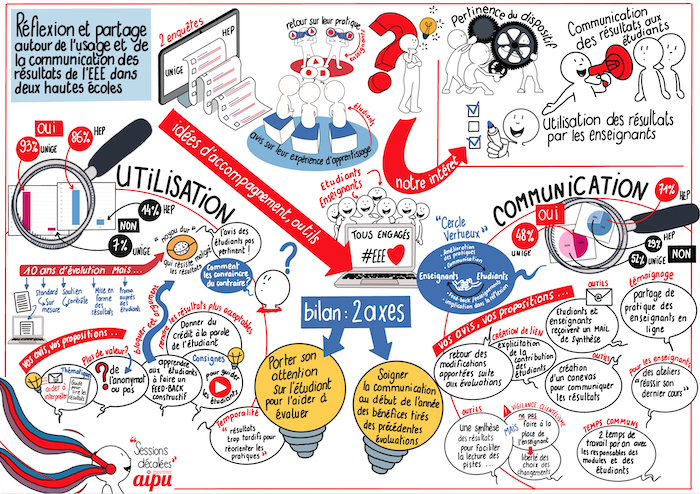 Réflexion et partage
autour de l'usage et de
la communication des
résultats de l'EEE dans
deux hautes écoles
2 enquêtes
HEP
UNIGE
retour sur leur pratique
enseignants
étudiants
avis sur leur expérience d'apprentissage
?
Pertinence du dispositif
Communication
des résultats aux
étudiants
Utilisation des résultats
par les enseignants
notre intérêt
idées d'accompagnement, outils
OUI
93% UNIGE
86% HEP
UTILISATION
NON
14% HEP
7% UNIGE
"noyau dur"
qui résiste malgré
les résultats
l'avis des
étudiants pas
pertinent !
Comment
les convaincre
du contraire ?
?
10 ans d'évolution Mais...
Standard
Sur
mesure
Soutien
Contrôle
Mise en
forme
des
résultats
auprès
des
étudiants
rendre les résultats plus acceptables
Donner du
crédit à la parole
de l'étudiant
vos avis, vos propositions ...
aider à
interpréter
Thématique
Guide
pour
lire les
résultats
Plus de valeur?
?
de
l'anonymat
ou pas
apprendre
aux étudiants
à faire un
FEED-BACK
constructif
Consignes
pour guider
les étudiants
Temporalité
"résultats
trop tardifs pour
réorienter les
pratiques"
"Sessions
décalées"
aipu
Etudiants
Enseignants
TOUS ENGAGÉS
#EEE
bilan : 2 axes
Porter son
attention
sur l'étudiant
pour l'aider à
évaluer
Soigner
la communication
au début de l'année
des bénéfices tirés
des précédentes
évaluations
COMMUNICATION
"Cercle
Vertueux"
Amélioration
des pratiques
communication
Enseignants
Etudiants
Feed-back enseignants
implication dans la réflexion
OUI
48%
UNIGE
71% HEP
NON
29%
HEP
52% UNIGE
vos avis, vos propositions ...
CRÉATION DE LIEN
retour des
modifications
apportées suite
aux évaluations
explicitation
de la
contribution des
étudiants
OUTILS
Etudiants et
enseignants
reçoivent un MAIL
de Synthèse
témoignage
partage de
pratique des
enseignants en
ligne
OUTILS
création d'un
canevas
pour communiquer
les résultats
pour les enseignants
des ateliers
"réussir son
dernier cours"
OUTILS
une synthèse
des résultats
pour faciliter
la lecture des
pistes ...
VIGILANCE CLIENTÉLISME
MAIS
ne pas
faire à la
place de
l'enseignant
liberté des
choix des
changements
TEMPS COMMUNS
2 temps de
travail par an avec
les responsables des
modules et des
étudiants